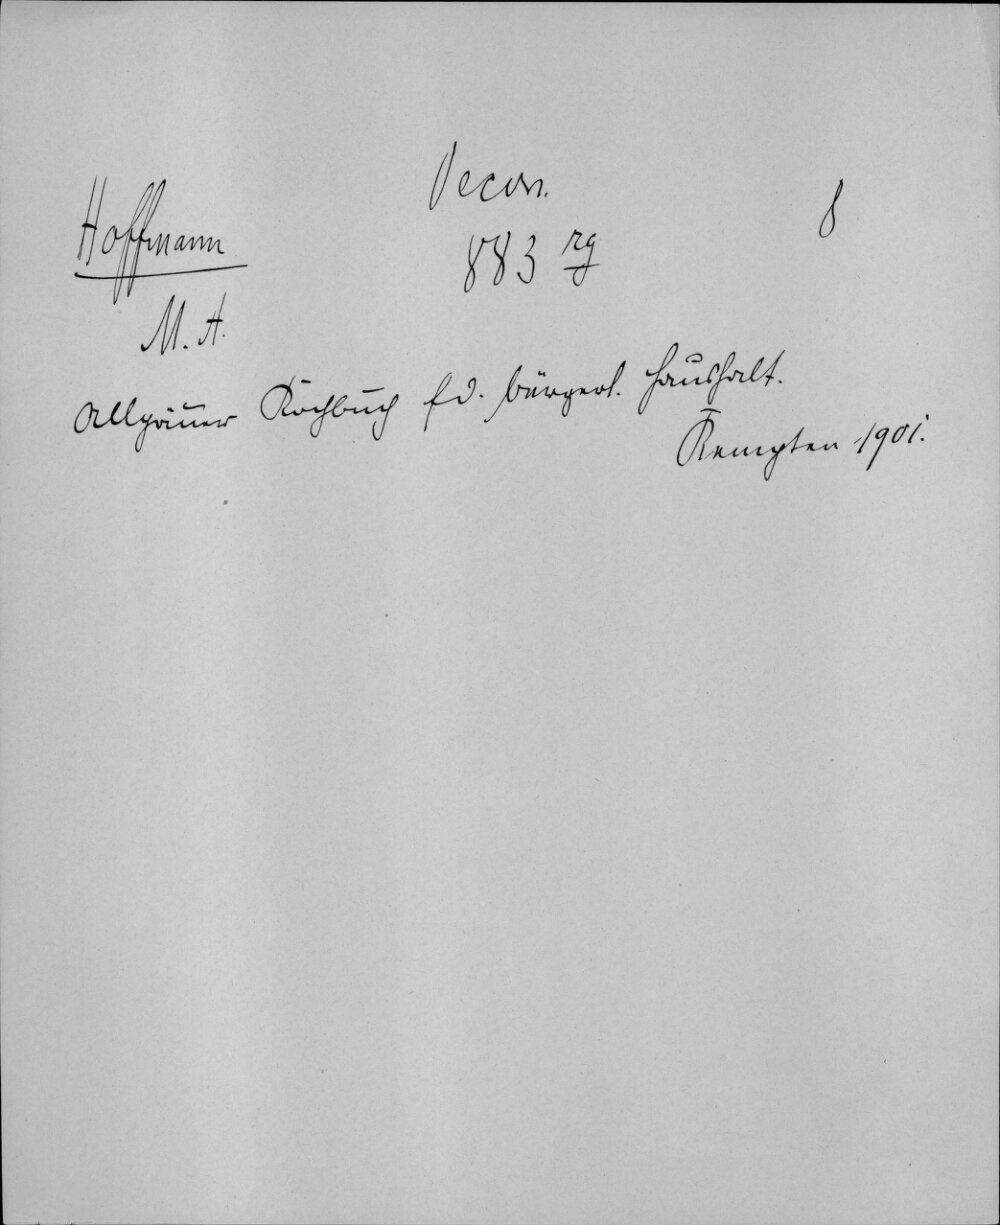 Oecon. 8
Hoffmann 883 rg
M. A.
Allgäuer Kochbuch f d. bürgerl. Haushalt.
Kempten 1901.